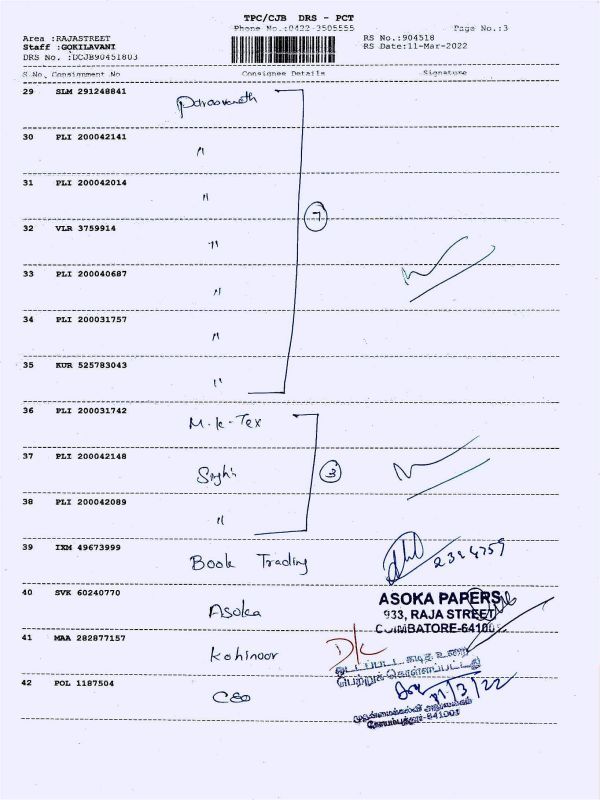 TPC/CJB DRS - PCT
Phone No.:0422-3505555 Page No.:3
Area :RAJASTREET RS No.:904518
Staff :GOKILAVANI RS Date:11-Mar-2022
DRS No. :DCJB90451803
S.No. Consignment No Consignee Details Signature
29 SLM 291248841
30 PLI 200042141 "
31 PLI 200042014 "
7
32 VLR 3759914 "
33 PLI 200040687 "
34 PLI 200031757 "
35 KUR 525783043 "
36 PLI 200031742 M.K-Tex
37 PLI 200042148 3
38 PLI 200042089 "
39 IXM 49673999 Book Trading
40 SVK 60240770 Asoka
ASOKA PAPERS
933, RAJA STREET
COIMBATORE-64100
41 MAA 282877157 Kohinoor
ஒட்டப்பட்ட கடித உறை
பெற்றுக் கொள்ளப்பட்டது
42 POL 1187504 CEO
11/3/22
முதன்மைக்கல்வி அலுவலகம்
கோயம்புத்தூர்-641001